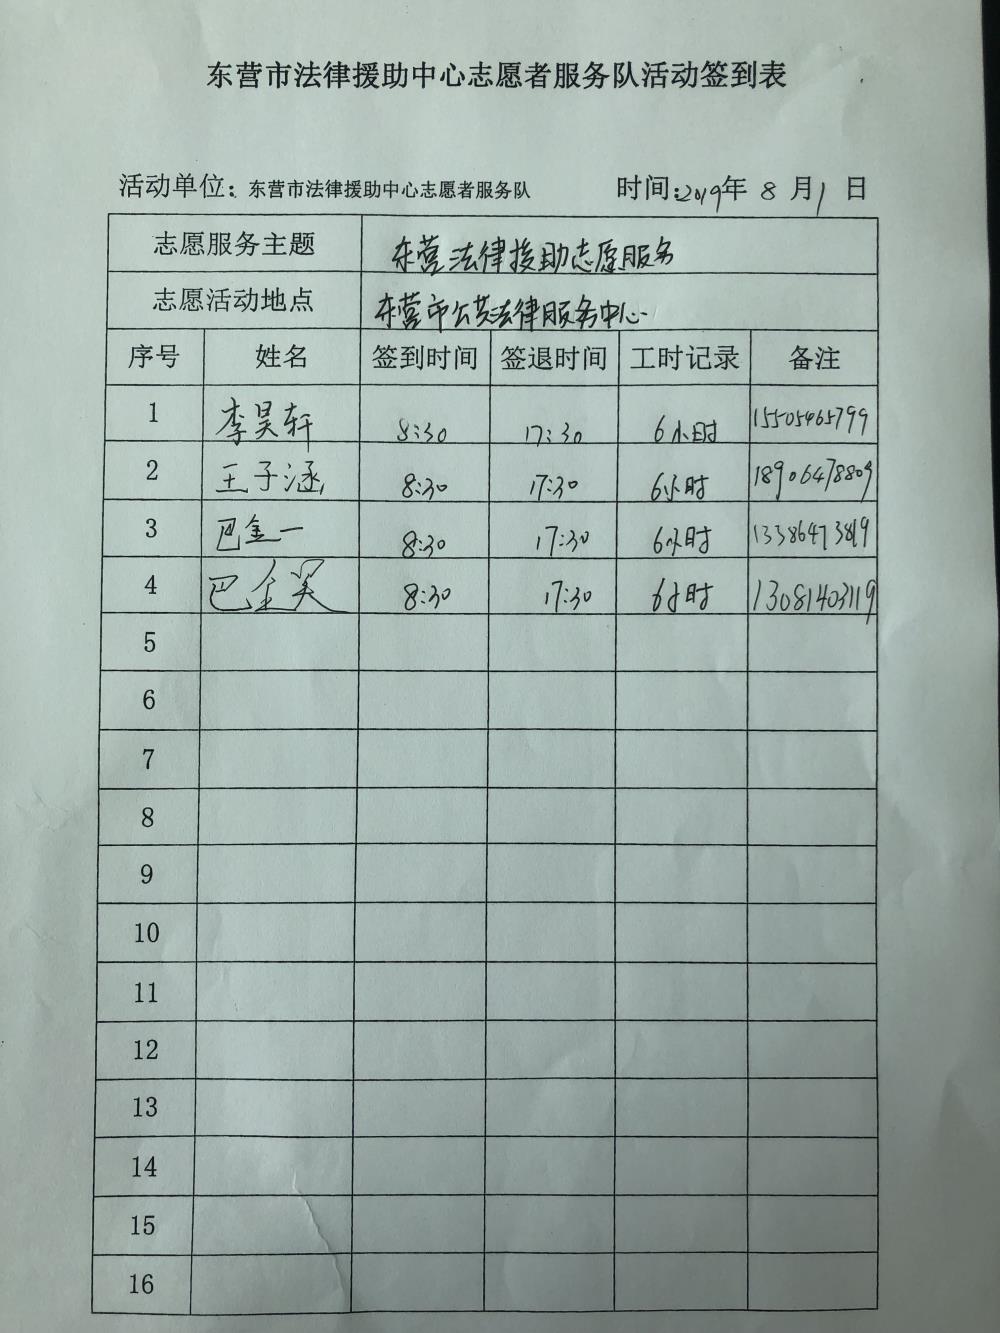 东营市法律援助中心志愿者服务队活动签到表
活动单位：东营市法律援助中心志愿者服务队 时间：2019年 8 月 1 日
志愿服务主题 东营法律援助志愿服务
志愿活动地点 东营市公共法律服务中心
序号 姓名 签到时间 签退时间 工时记录 备注
1 李昊轩 8:30 17:30 6小时 15505465799
2 王子涵 8:30 17:30 6小时 18906478809
3 巴金一 8:30 17:30 6小时 13386473819
4 巴金 8:30 17:30 6小时 13081403119
5
6
7
8
9
10
11
12
13
14
15
16